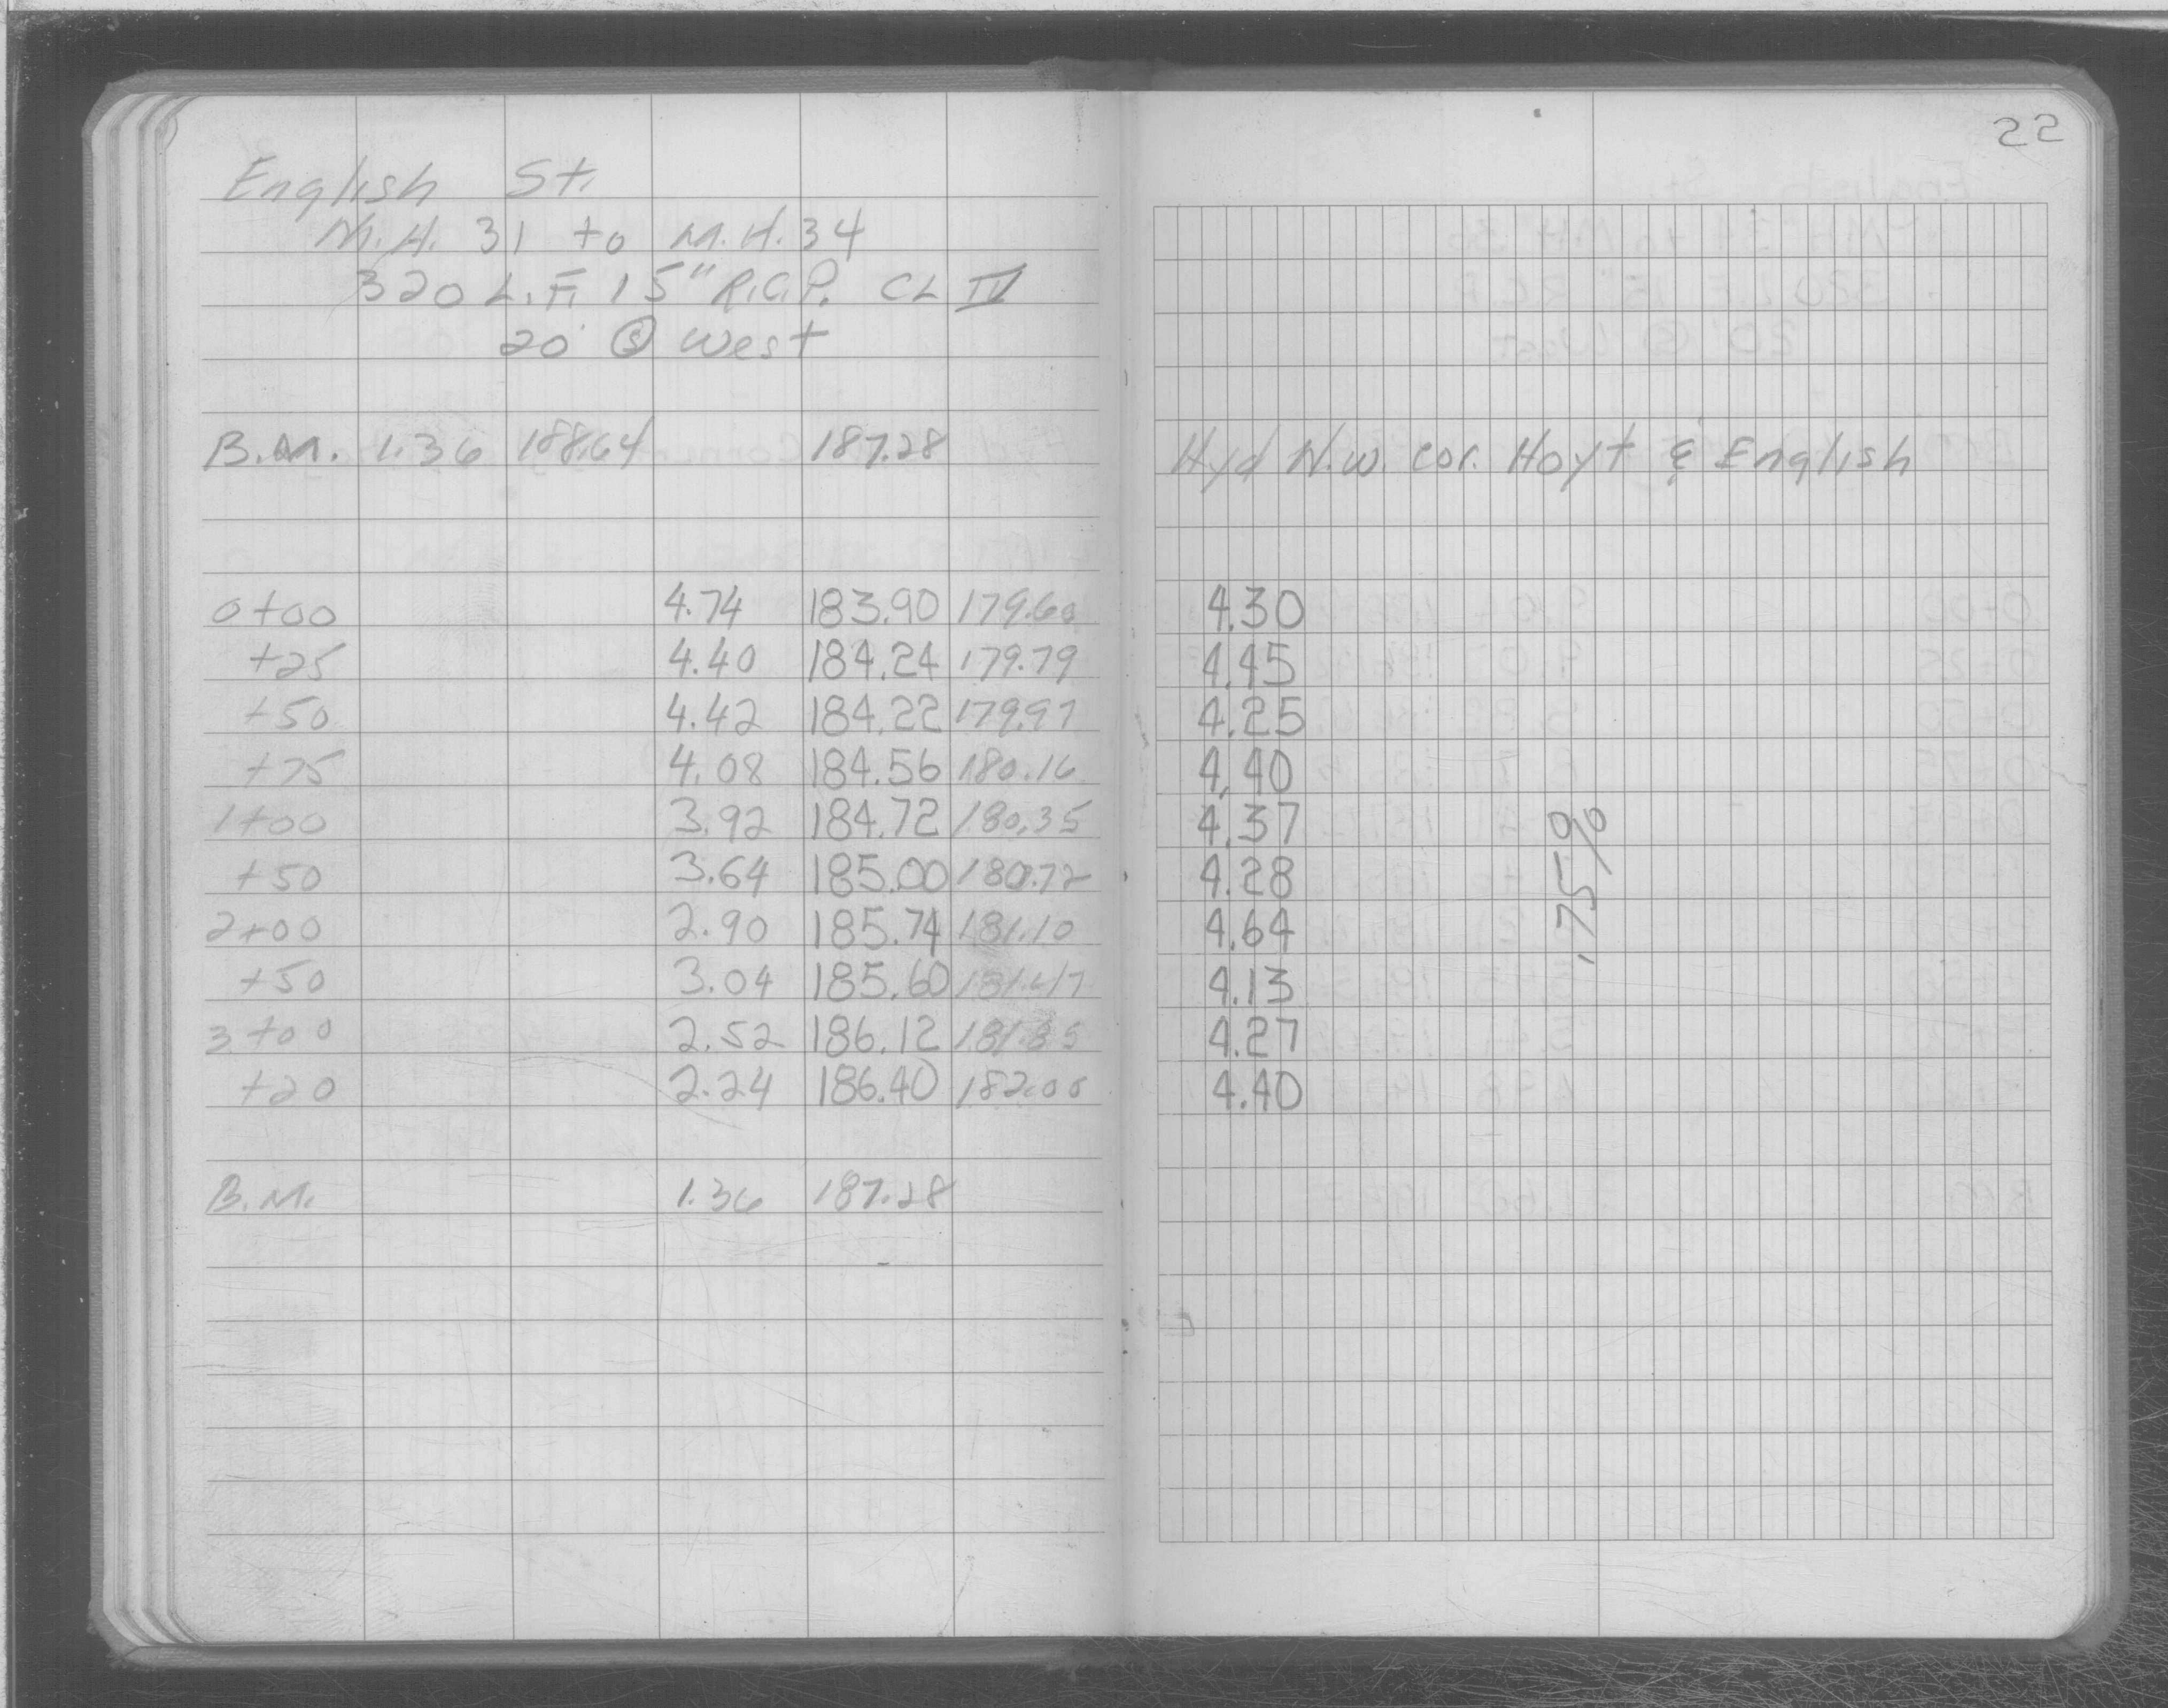 22
English St.
M.H. 31 to M.H. 34
320 L.F. 15" R.C.P. CL IV
20' Ⓢ West
B.M. 1.36 188.64 187.28 Hyd N.W. cor. Hoyt & English
0+00 4.74 183.90 179.60 4.30
+25 4.40 184.24 179.79 4.45
+50 4.42 184.22 179.97 4.25
+75 4.08 184.56 180.16 4.40
1+00 3.92 184.72 180.35 4.37
+50 3.64 185.00 180.72 4.28
2+00 2.90 185.74 181.10 4.64
+50 3.04 185.60 181.47 4.13
3+00 2.52 186.12 181.85 4.27
+20 2.24 186.40 182.00 4.40
.75%
B.M. 1.36 187.28